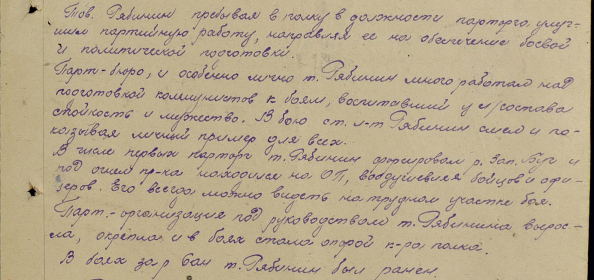 Тов. Рябинин пребывая в полку в должности парторга улуч-
шил партийную работу, направляя ее на обеспечение боевой
и политической подготовки.
Парт-бюро, и особенно лично т. Рябинин много работал над
подготовкой коммунистов к боям, воспитавший у л/состава
стойкость и мужество. В бою ст. л-т Рябинин смел и по-
казывая личный пример для всех.
В числе первых парторг т. Рябинин форсировал р. Зап. Буг и
под огнем пр-ка находился на ОП, воодушевляя бойцов и офи-
церов. Его всегда можно видеть на трудном участке боя.
Парт.-организация под руководством т. Рябинина, вырос-
ла, окрепла и в боях стала опорой к-ра полка.
В боях за р. Сан т. Рябинин был ранен.